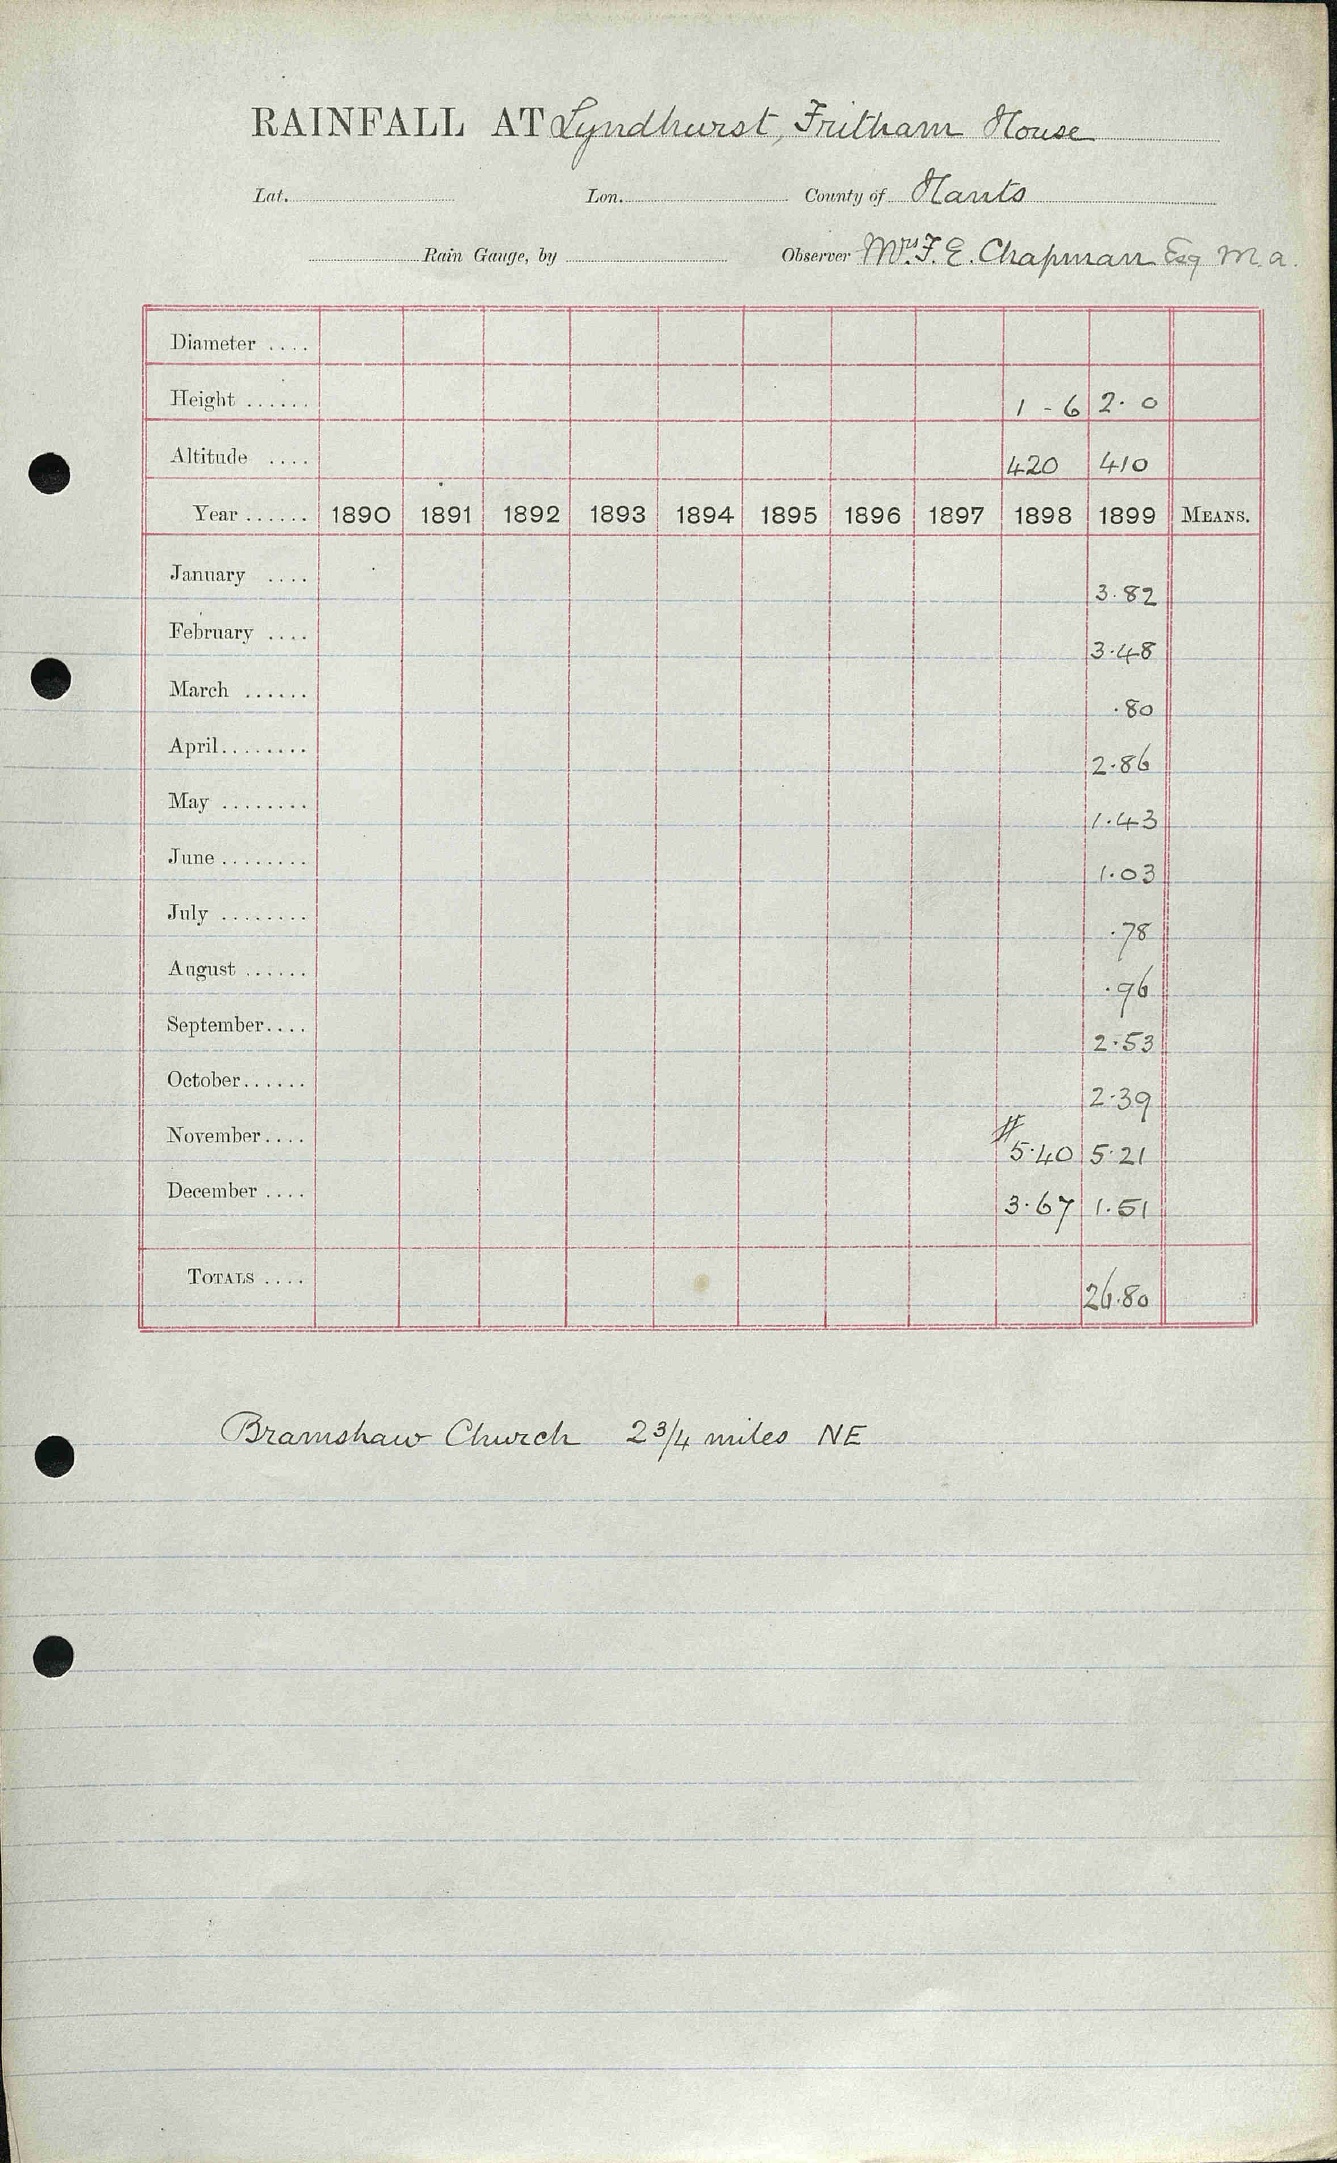 RAINFALL AT Lyndhurst, Fritham House
Lat. Lon. County of Hants
Rain Gauge, by Observer Mrs. F. E. Chapman Esq M.a.
Diameter ....
Height ...... 1 - 6 2. 0
Altitude .... 420 410
Year ...... 1890 1891 1892 1893 1894 1895 1896 1897 1898 1899 MEANS.
January .... 3.82
February .... 3.48
March ...... .80
April........ 2.86
May ........ 1.43
June ........ 1.03
July ........ .78
August ...... .96
September.... 2.53
October...... 2.39
November.... # 5.40 5.21
December .... 3.67 1.51
TOTALS .... 26.80
Bramshaw Church 2 3/4 miles NE